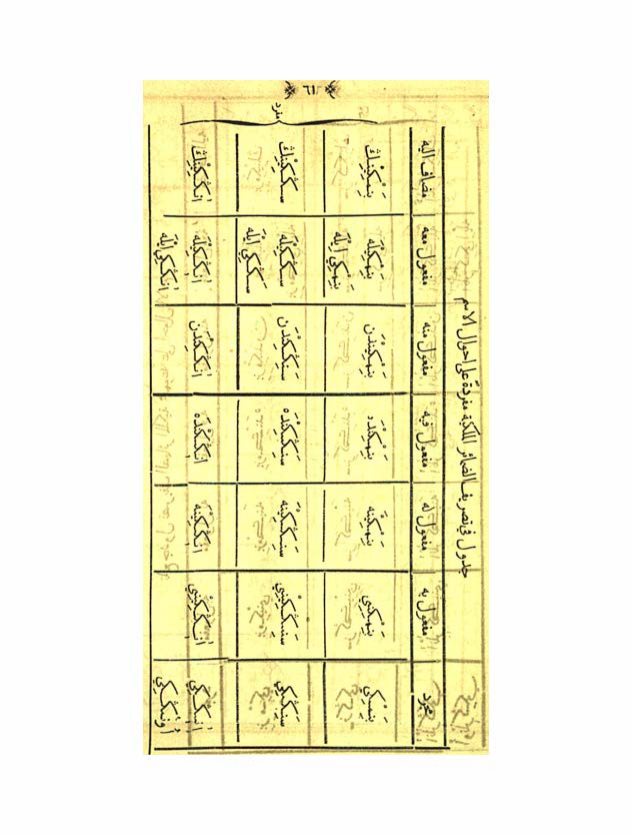 ٦١
جدول في تصريف الضمائر الملكية مفردة على احوال الاسم
مجرد مفعول به مفعول له مفعول فيه مفعول منه مفعول معه مضاف اليه
مفرد
بَنِمْكِي بَنِمْكِينِي بَنِمْكِينَه بَنِمْكِنْدَه بَنِمْكِينْدَن بَنِمْكِيلَه بَنِمْكِينِڭ
بَنِمْكِي اِيلَه
سَنِڭْكِي سَنِڭْكِينِي سَنِڭْكِينَه سَنِڭْكِنْدَه سَنِڭْكِنْدَن سَنِڭْكِيلَه سَنِڭْكِينِڭ
سَنِڭْكِي اِيلَه
اَنِڭْكِي اَنِڭْكِينِي اَنِڭْكِينَه اَنِڭْكِنْدَه اَنِڭْكِنْدَن اَنِڭْكِيلَه اَنِڭْكِينِڭ
اُونِڭْكِي اَنِڭْكِي اِيلَه